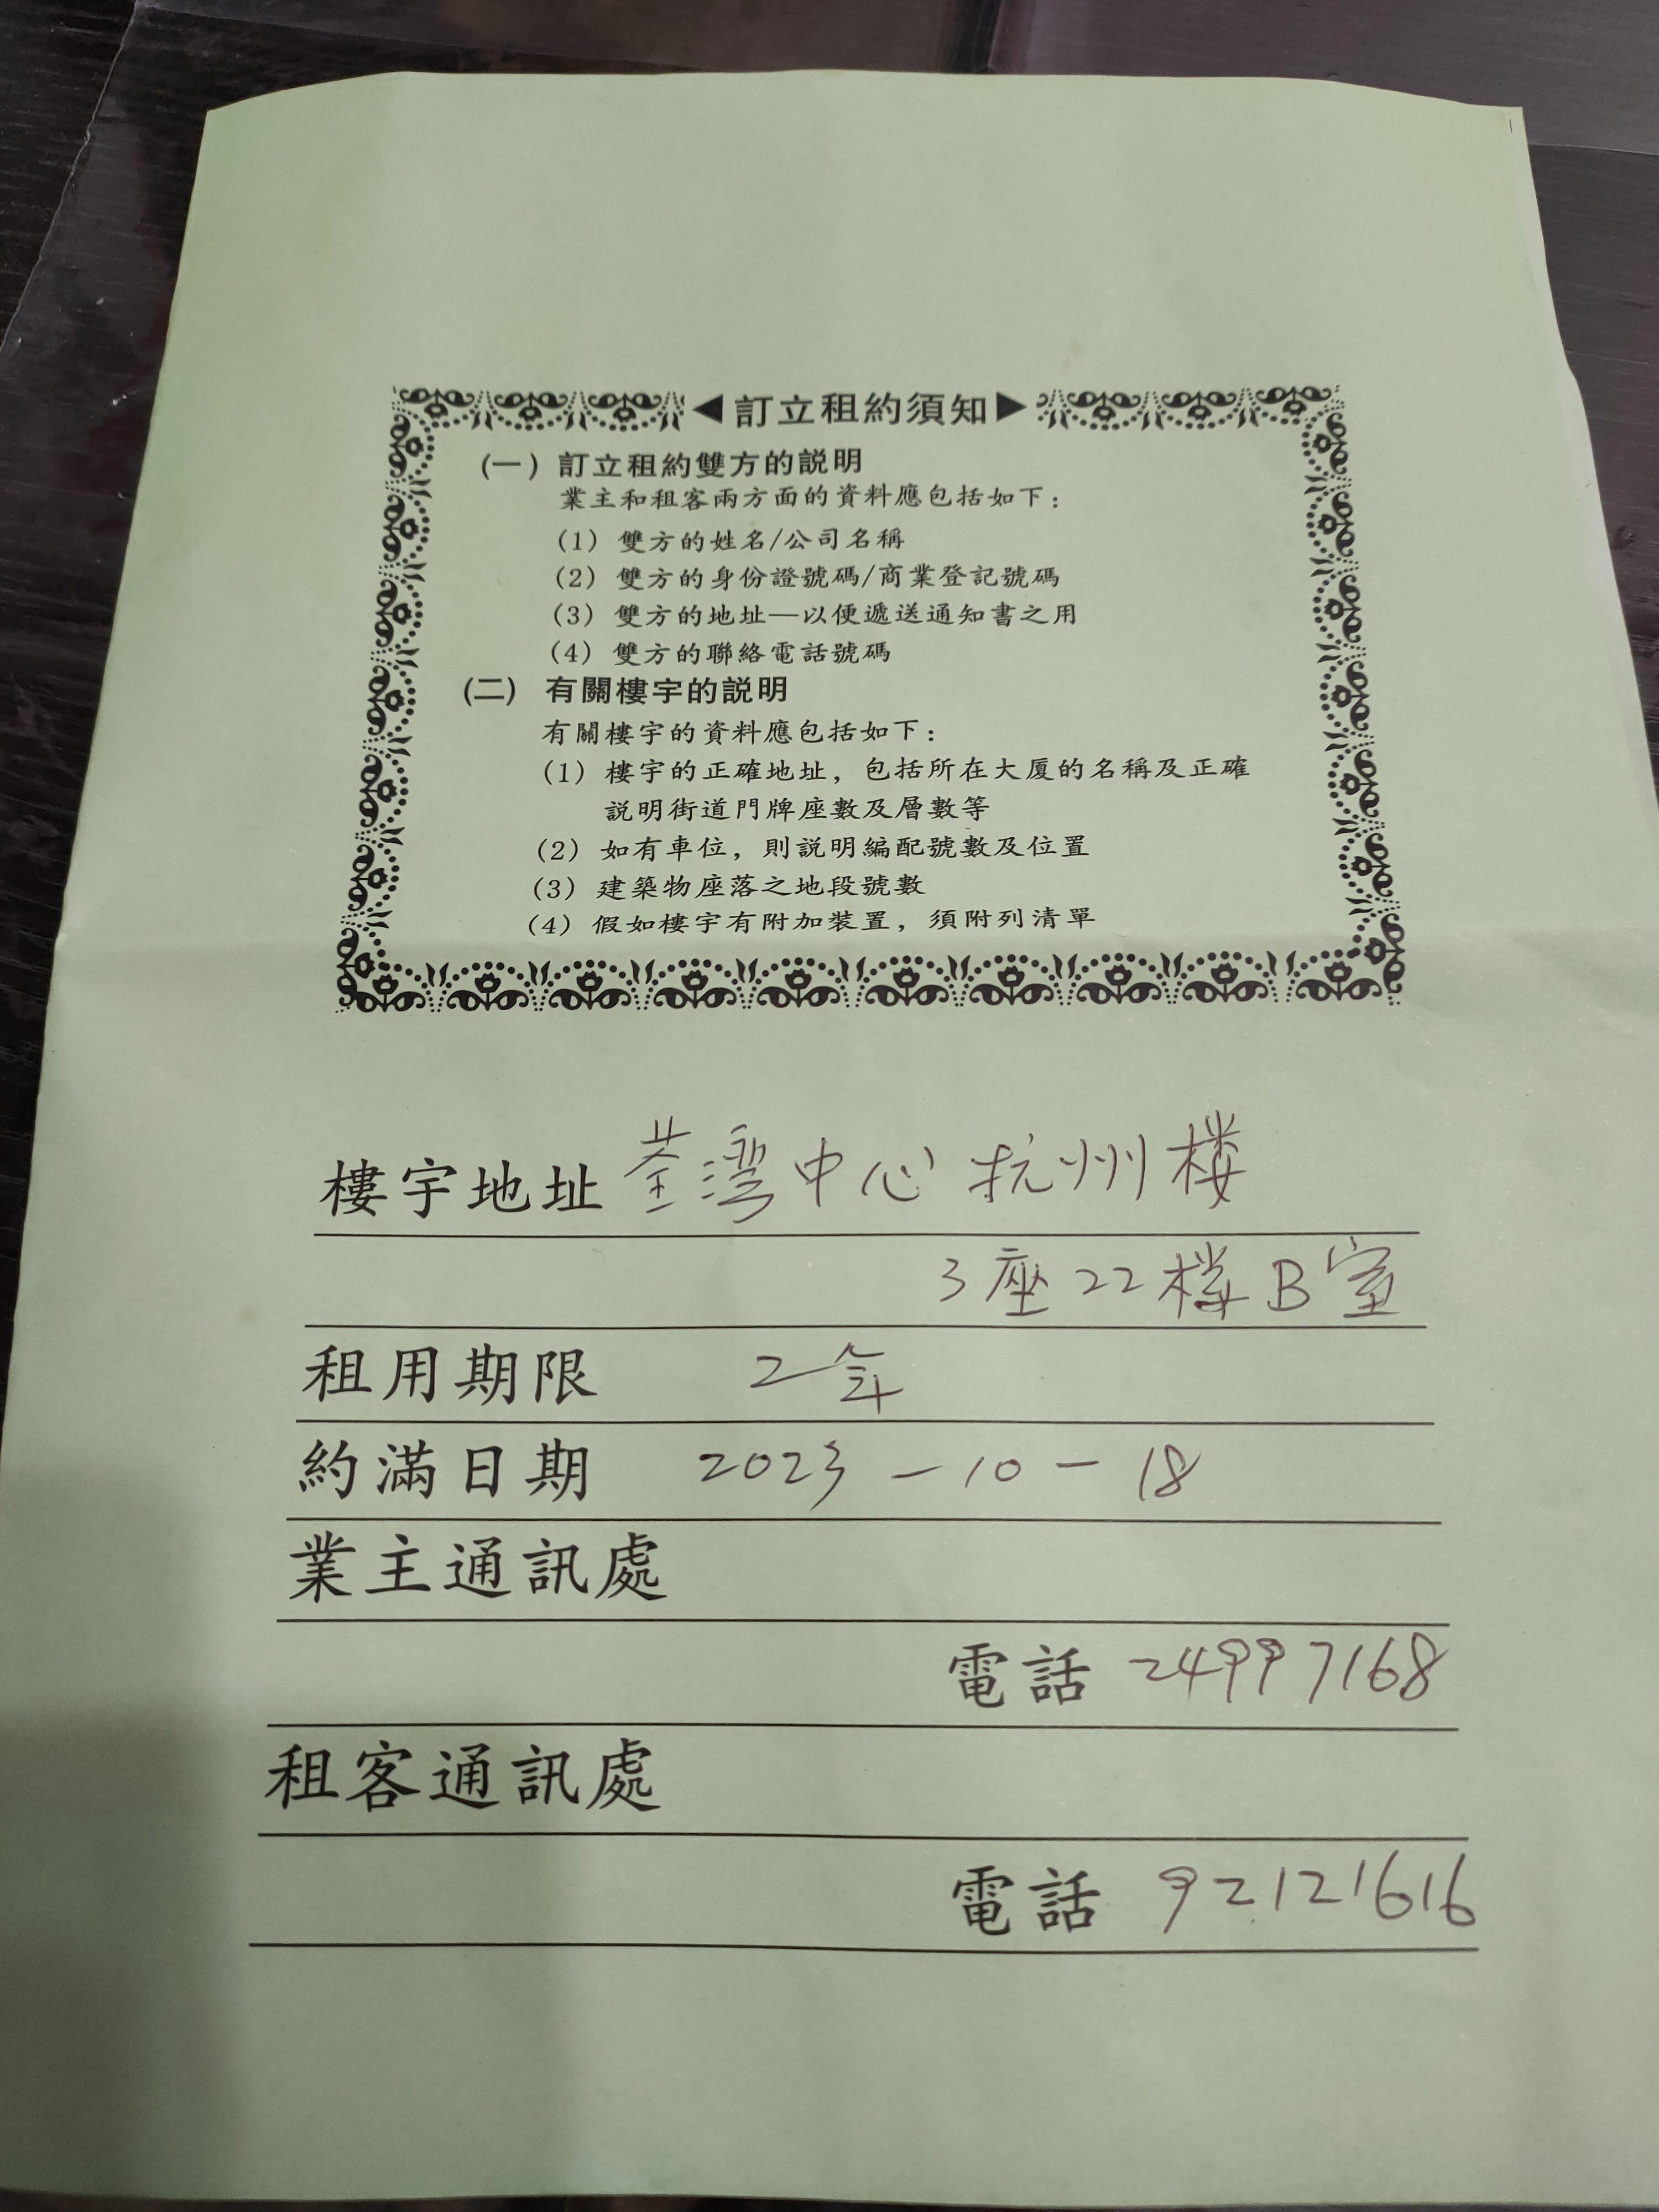 ◀訂立租約須知▶
(一) 訂立租約雙方的説明
業主和租客兩方面的資料應包括如下:
(1) 雙方的姓名/公司名稱
(2) 雙方的身份證號碼/商業登記號碼
(3) 雙方的地址—以便遞送通知書之用
(4) 雙方的聯絡電話號碼
(二) 有關樓宇的説明
有關樓宇的資料應包括如下:
(1) 樓宇的正確地址，包括所在大厦的名稱及正確
説明街道門牌座數及層數等
(2) 如有車位，則説明編配號數及位置
(3) 建築物座落之地段號數
(4) 假如樓宇有附加裝置，須附列清單
樓宇地址 荃湾中心 杭州楼
3座22楼B室
租用期限 2年
約滿日期 2023-10-18
業主通訊處
電話 24997168
租客通訊處
電話 92121616